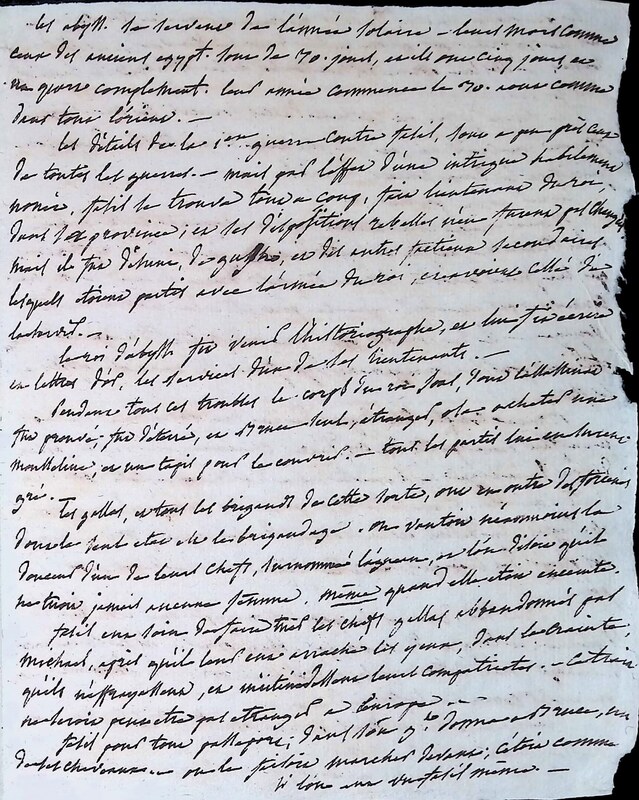 les abyss. se servent de l'année solaire — leurs mois comme
ceux des anciens egypt. sont de 30. jours, et ils ont cinq jours et
un quart complement. leur année commence le 70. nous comme
dans tout l'orient. —
les détails de la 1ere guerre contre fasil, sont a peu près ceux
de toutes les guerres. — mais par l'effet d'une intrigue habilement
nouée, fasil se trouva tout a coup, fait lieutenant du roi,
dans sa province; et ses dispositions rebelles n'en furent pas changées
mais il fut désuni, de gusho, et des autres factieux secondaires
lesquels étoient partis avec l'armée du roi, et avouer celle de
— 
le roi d'abyss. fit venir l'historiographe, et lui fit écrire
en lettres d'or, les services d'un de ses lieutenants. —
Pendant tous ces troubles le corps du roi Joas, dont l'assassinat
fut prouvé, fut déterré, et Bruce seul, étranger, osa acheter une
mousseline, et un tapis pour le couvrir. — tous les partis lui en surent
gré.
Les gallas, et tous les brigands de cette sorte, ont en outre des forces
dont le seul etat est le brigandage. on vantoit néanmoins la
douceur d'un de leurs chefs, surnommé l'agneau, et l'on disoit qu'il
ne tuoit jamais aucune femme. même quand elle etoit enceinte.
fasil eut soin de faire tuer les chefs gallas abbandonnés par
michael, après qu'il leur eut arraché les yeux, dans la crainte,
qu'ils n'effrayassent, et n'intimidassent leurs compatriotes. — ce trait
ne seroit peut etre pas etranger a Europe. —
fasil pour tout passeport, dans son donna a Bruce, un
de ses chevaux. — on le faisoit marcher devant; c'étoit comme
si l'on eut vu fasil même. —